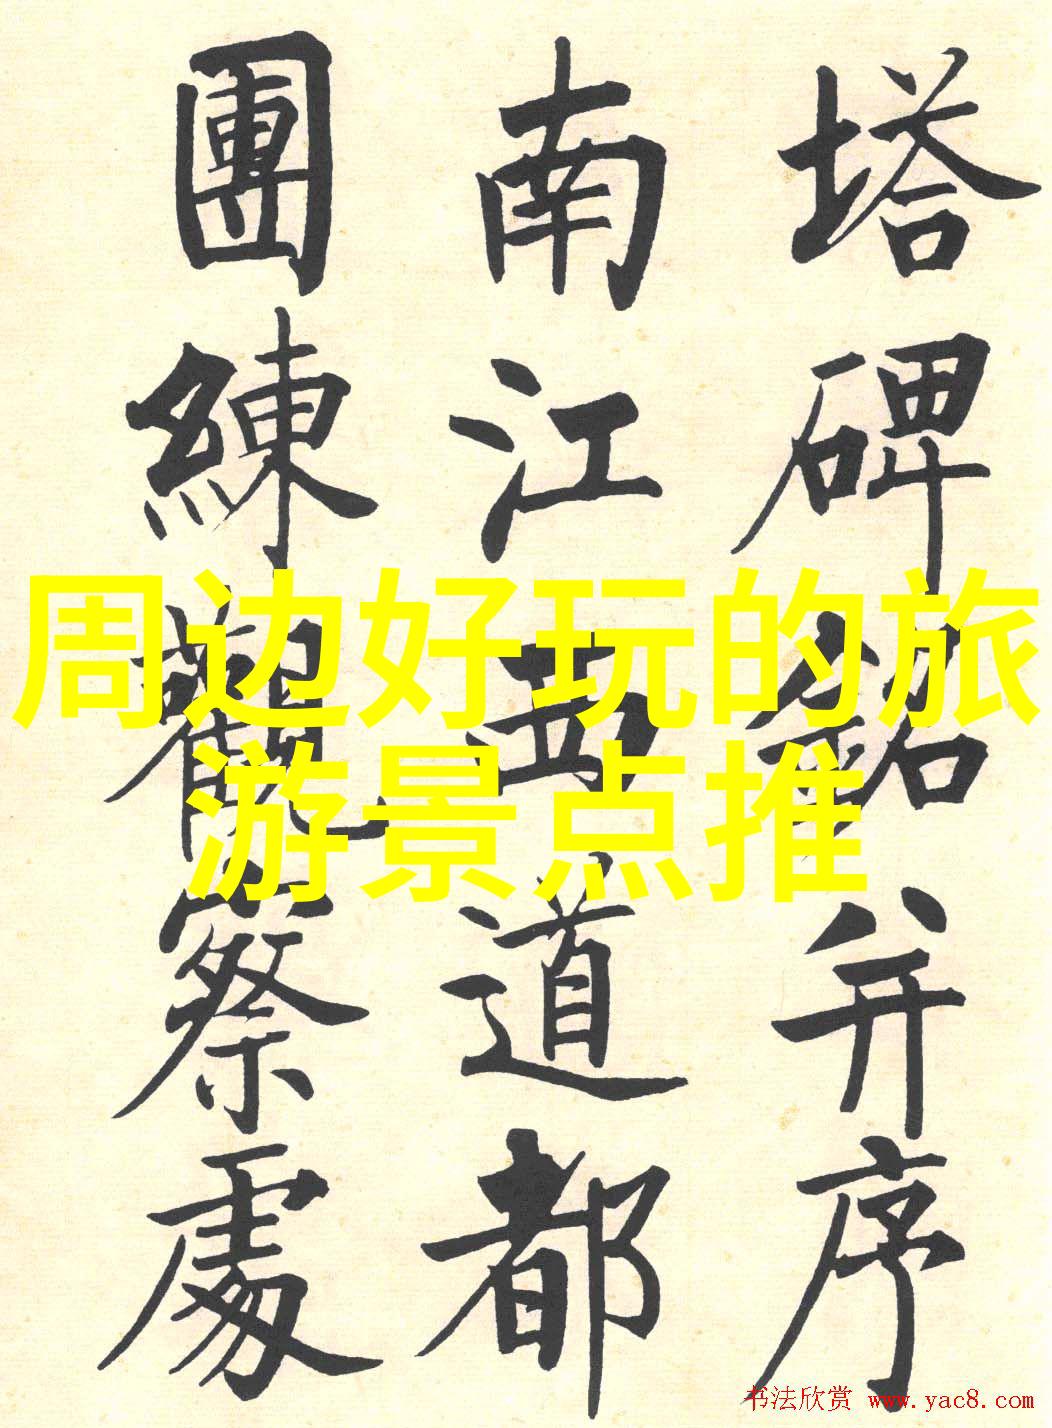 塔碑銘并序
南江西道都
團練觀察處
周边好玩的旅
游景点推
书法欣赏 www.yac8.com